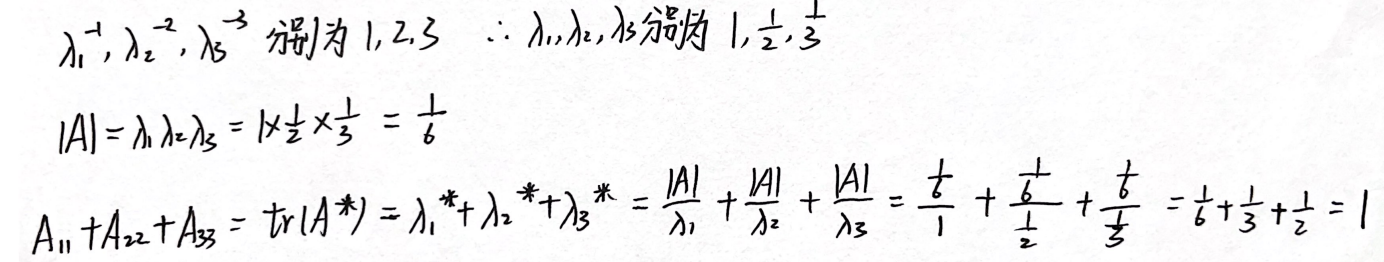 λ₁⁻¹, λ₂⁻², λ₃⁻³ 分别为 1,2,3 ∴ λ₁,λ₂,λ₃分别为 1,1/2,1/3
|A|=λ₁λ₂λ₃=1×1/2×1/3=1/6
A₁₁+A₂₂+A₃₃=tr(A*)=λ₁*+λ₂*+λ₃*=|A|/λ₁+|A|/λ₂+|A|/λ₃=(1/6)/1+(1/6)/(1/2)+(1/6)/(1/3)=1/6+1/3+1/2=1